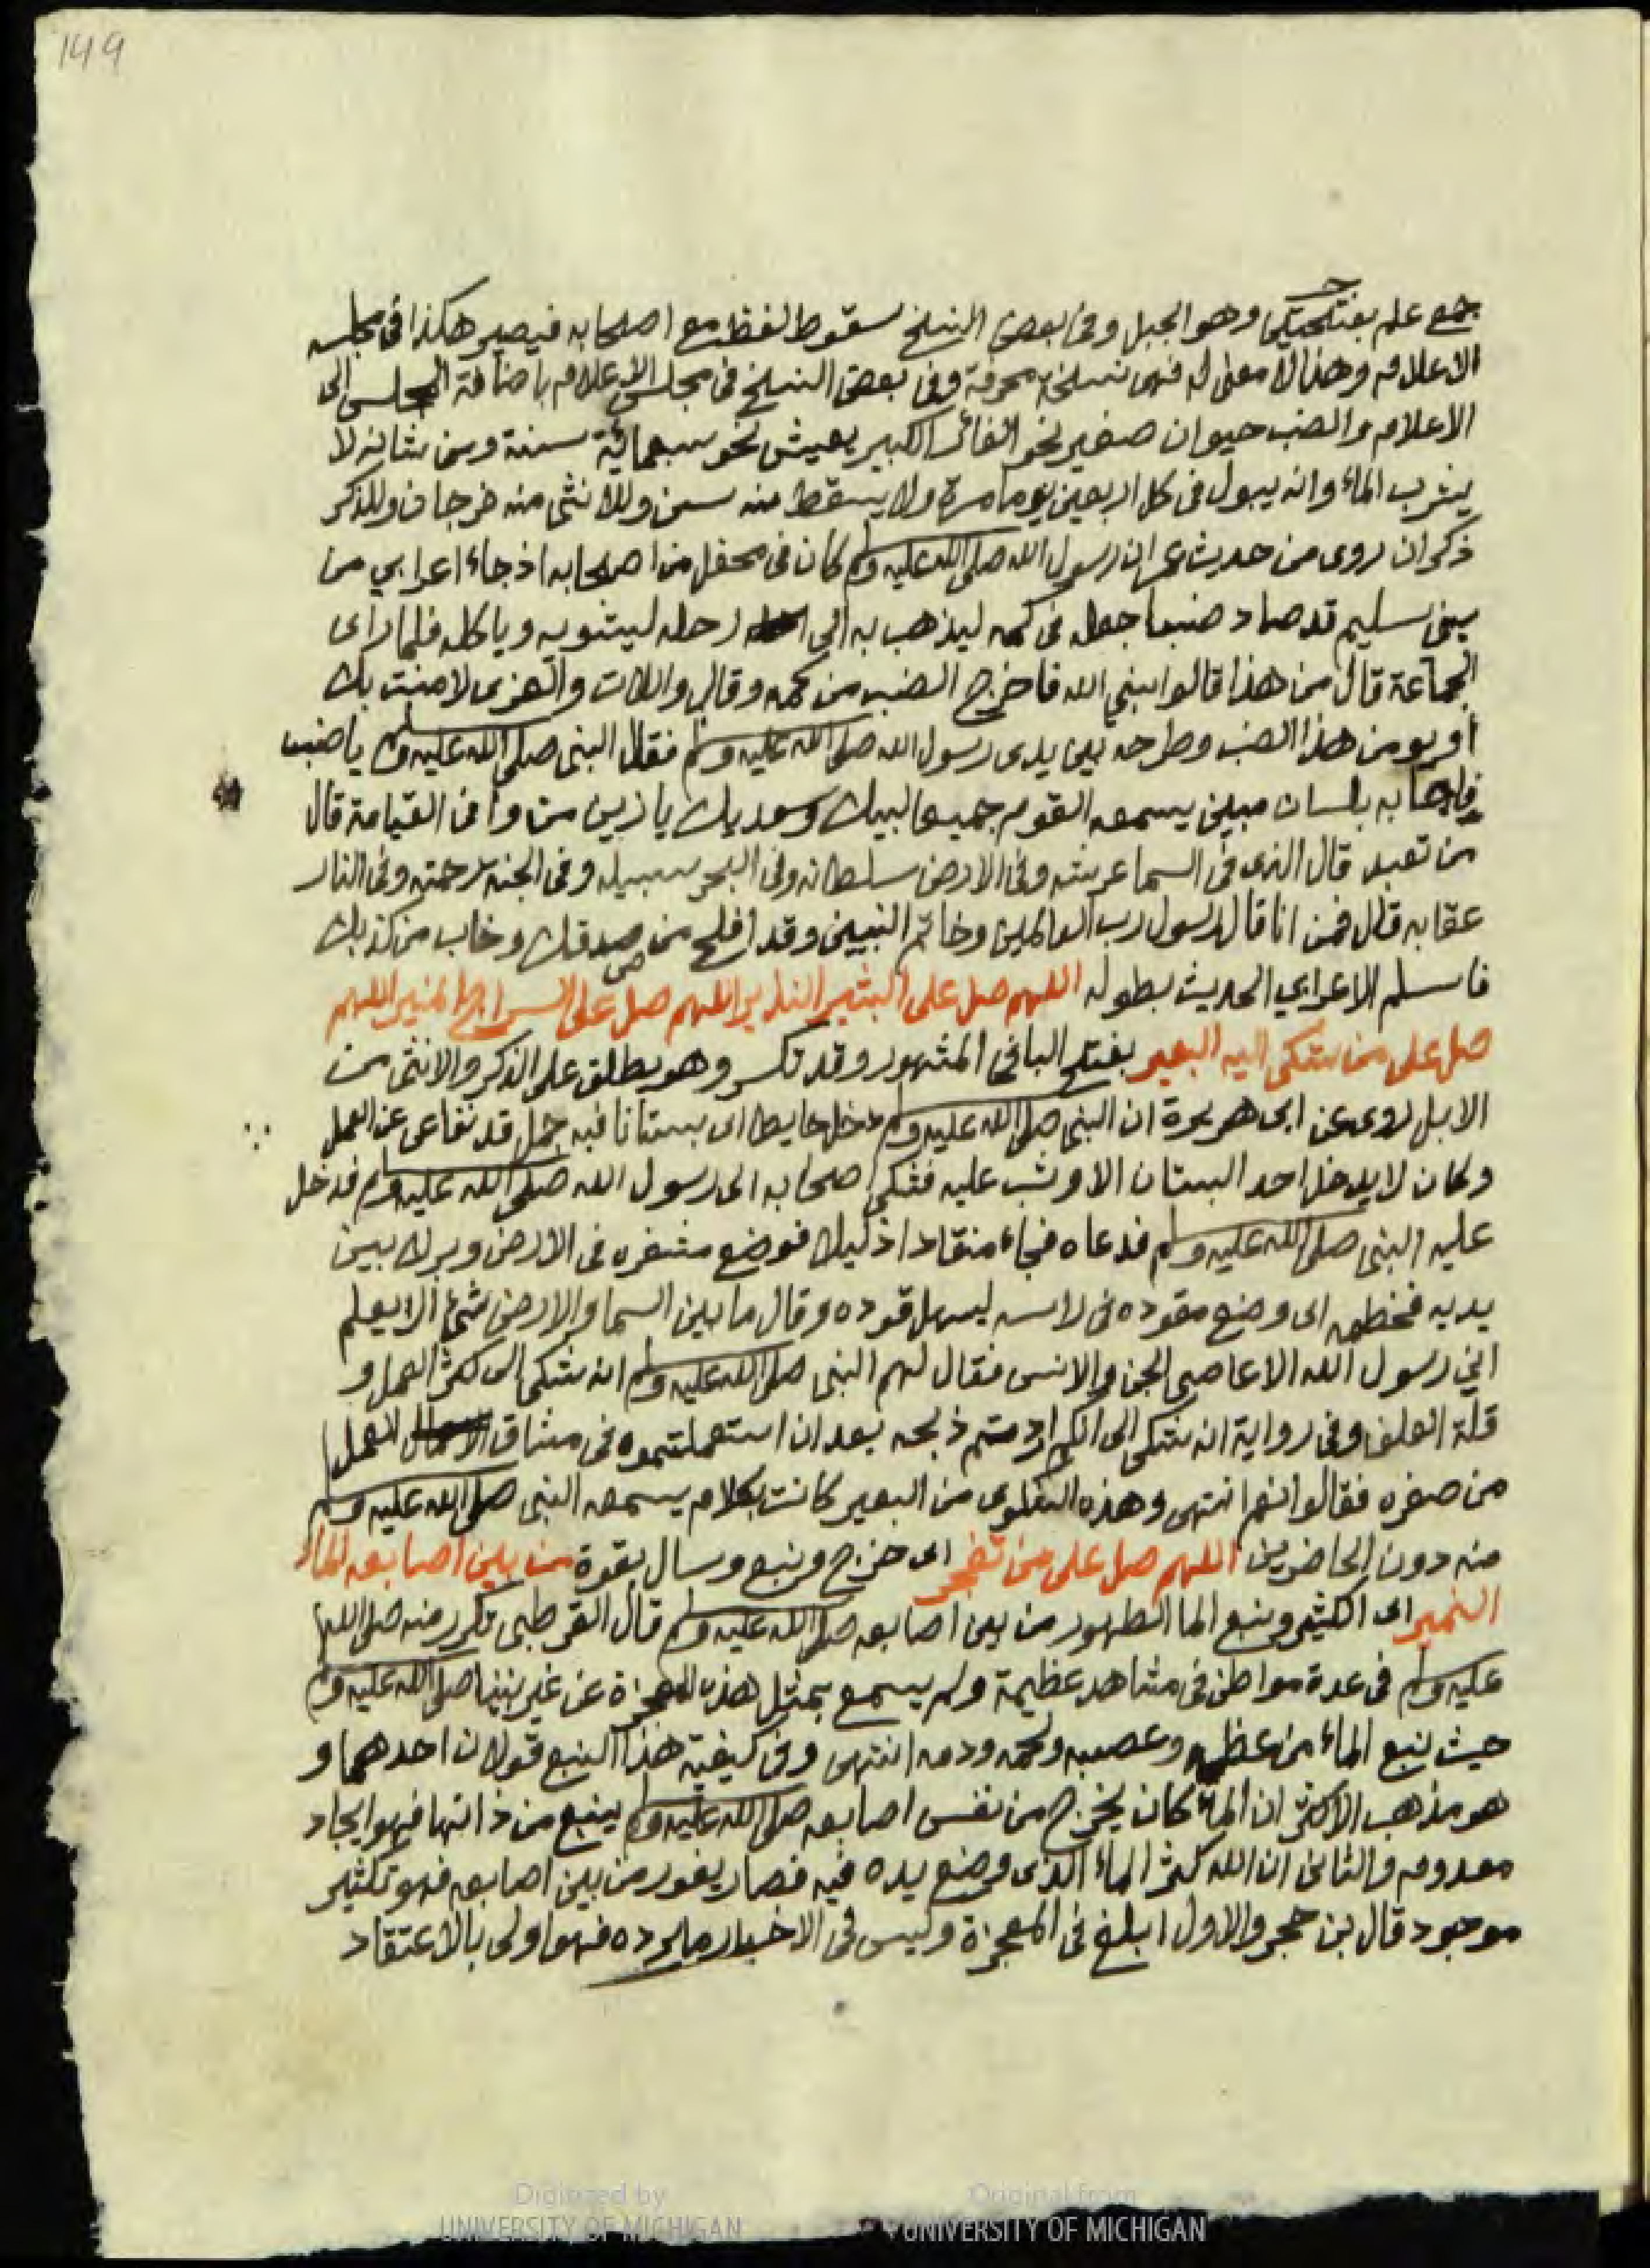 149
جمع علم بفتحتين وهو الجبل وفى بعض النسخ سقوط لفظ مع اصحابه فيصير هكذا فى مجلسه
الاعلام وهذا لا معنى له فهى نسخة محرفة وفى بعض النسخ فى مجلس الاعلام باضافة المجلس الى
الاعلام والضب حيوان صغير نحو الفائر الكبير يعيش نحو سبعمائة سنة ومن شانه لا
يشرب الماء وانه يبول فى كل اربعين يوما مرة ولا يسقط منه سن وللانثى منه فرجان وللذكر
ذكران روى من حديث عمر ان رسول الله صلى الله عليه وسلم كان فى محفل من اصحابه اذ جاء اعرابي من
بنى سليم قد صاد ضبا جعله فى كمه ليذهب به الى رحله ليشويه وياكله فلما راى
الجماعة قال من هذا قالوا نبي الله فاخرج الضب من كمه وقال واللات والعزى لا امنت بك
او يومن هذا الضب وطرحه بين يدى رسول الله صلى الله عليه وسلم فقال النبى صلى الله عليه وسلم يا ضب
فاجابه بلسان مبين يسمعه القوم جميعا لبيك وسعديك يا زين من وافى القيامة قال
من تعبد قال الذى فى السما عرشه وفى الارض سلطانه وفى البحر سبيله وفى الجنه رحمته وفى النار
عقابه قال فمن انا قال رسول رب العالمين وخاتم النبيين وقد افلح من صدقك وخاب من كذبك
فاسلم الاعرابي الحديث بطوله اللهم صل على البشير النذير اللهم صل على السراج المنير اللهم
صل على من شكى اليه البعير بفتح البا فى المشهور وقد تكسر وهو يطلق على الذكر والانثى من
الابل روى عن ابى هريرة ان النبى صلى الله عليه وسلم دخل حايطا اى بستانا فيه جمل قد تقاعى عن العمل
وكان لا يدخل احد البستان الا وشب عليه فشكى اصحابه الى رسول الله صلى الله عليه وسلم فدخل
عليه النبى صلى الله عليه وسلم فدعاه فجاء منقادا ذليلا فوضع مشفره فى الارض وبرك بين
يديه فخطمه اى وضع مقوده فى راسه ليسهل قوده وقال ما بين السما والارض شئ الا يعلم
اني رسول الله الا عاصى الجن والانس فقال لهم النبى صلى الله عليه وسلم انه شكى الى كثر العمل و
قلة العلف وفى رواية انه شكى الى انكم اردتم ذبحه بعد ان استعملتموه فى مشاق العمل
من صغره فقالوا نعم انتهى وهذه الشكوى من البعير كانت بكلام يسمعه النبى صلى الله عليه وسلم
منه دون الحاضرين اللهم صل على من تفجر اى خرج ونبع وسال بقوة من بين اصابعه الماء
النمير اى الكثير ونبع الما الطهور من بين اصابعه صلى الله عليه وسلم قال القرطبى تكرر منه صلى الله
عليه وسلم فى عدة مواطن فى مشاهد عظيمة ولم يسمع بمثل هذه المعجزة عن غير نبينا صلى الله عليه وسلم
حيث نبع الماء من عظمه وعصبه ولحمه ودمه انتهى وفى كيفية هذا النبع قولان احدهما و
هو مذهب الاكثر ان الماء كان يخرج من نفس اصابعه صلى الله عليه وسلم ينبع من ذاتها فهو ايجاد
معدوم والثانى ان الله كثر الماء الذى وضع يده فيه فصار يفور من بين اصابعه فهو تكثير
موجود قال بن حجر والاول ابلغ فى المعجزة وليس فى الاخبار ما يرده فهو اولى بالاعتقاد
Digitized by
UNIVERSITY OF MICHIGAN
Original from
UNIVERSITY OF MICHIGAN